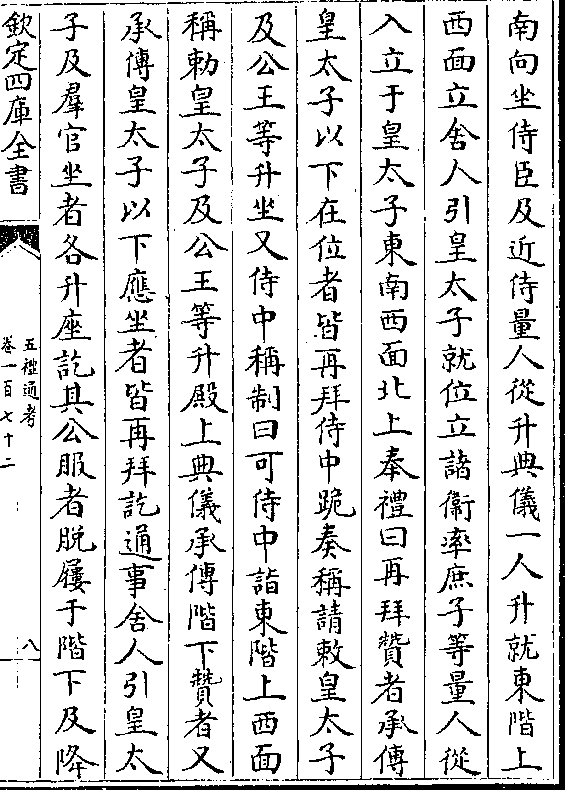 南向坐侍臣及近侍量人從升典儀一人升就東階上
西面立舍人引皇太子就位立諸衛率庶子等量人從
入立于皇太子東南西面北上奉禮曰再拜贊者承傳
皇太子以下在位者皆再拜侍中跪奏稱請敕皇太子
及公王等升坐又侍中稱制曰可侍中詣東階上西面
稱勅皇太子及公王等升殿上典儀承傳階下贊者又
承傳皇太子以下應坐者皆再拜訖通事舍人引皇太
子及羣官坐者各升座訖其公服者脱屨于階下及降
欽定四庫全書
五禮通考
卷一百七十二
八